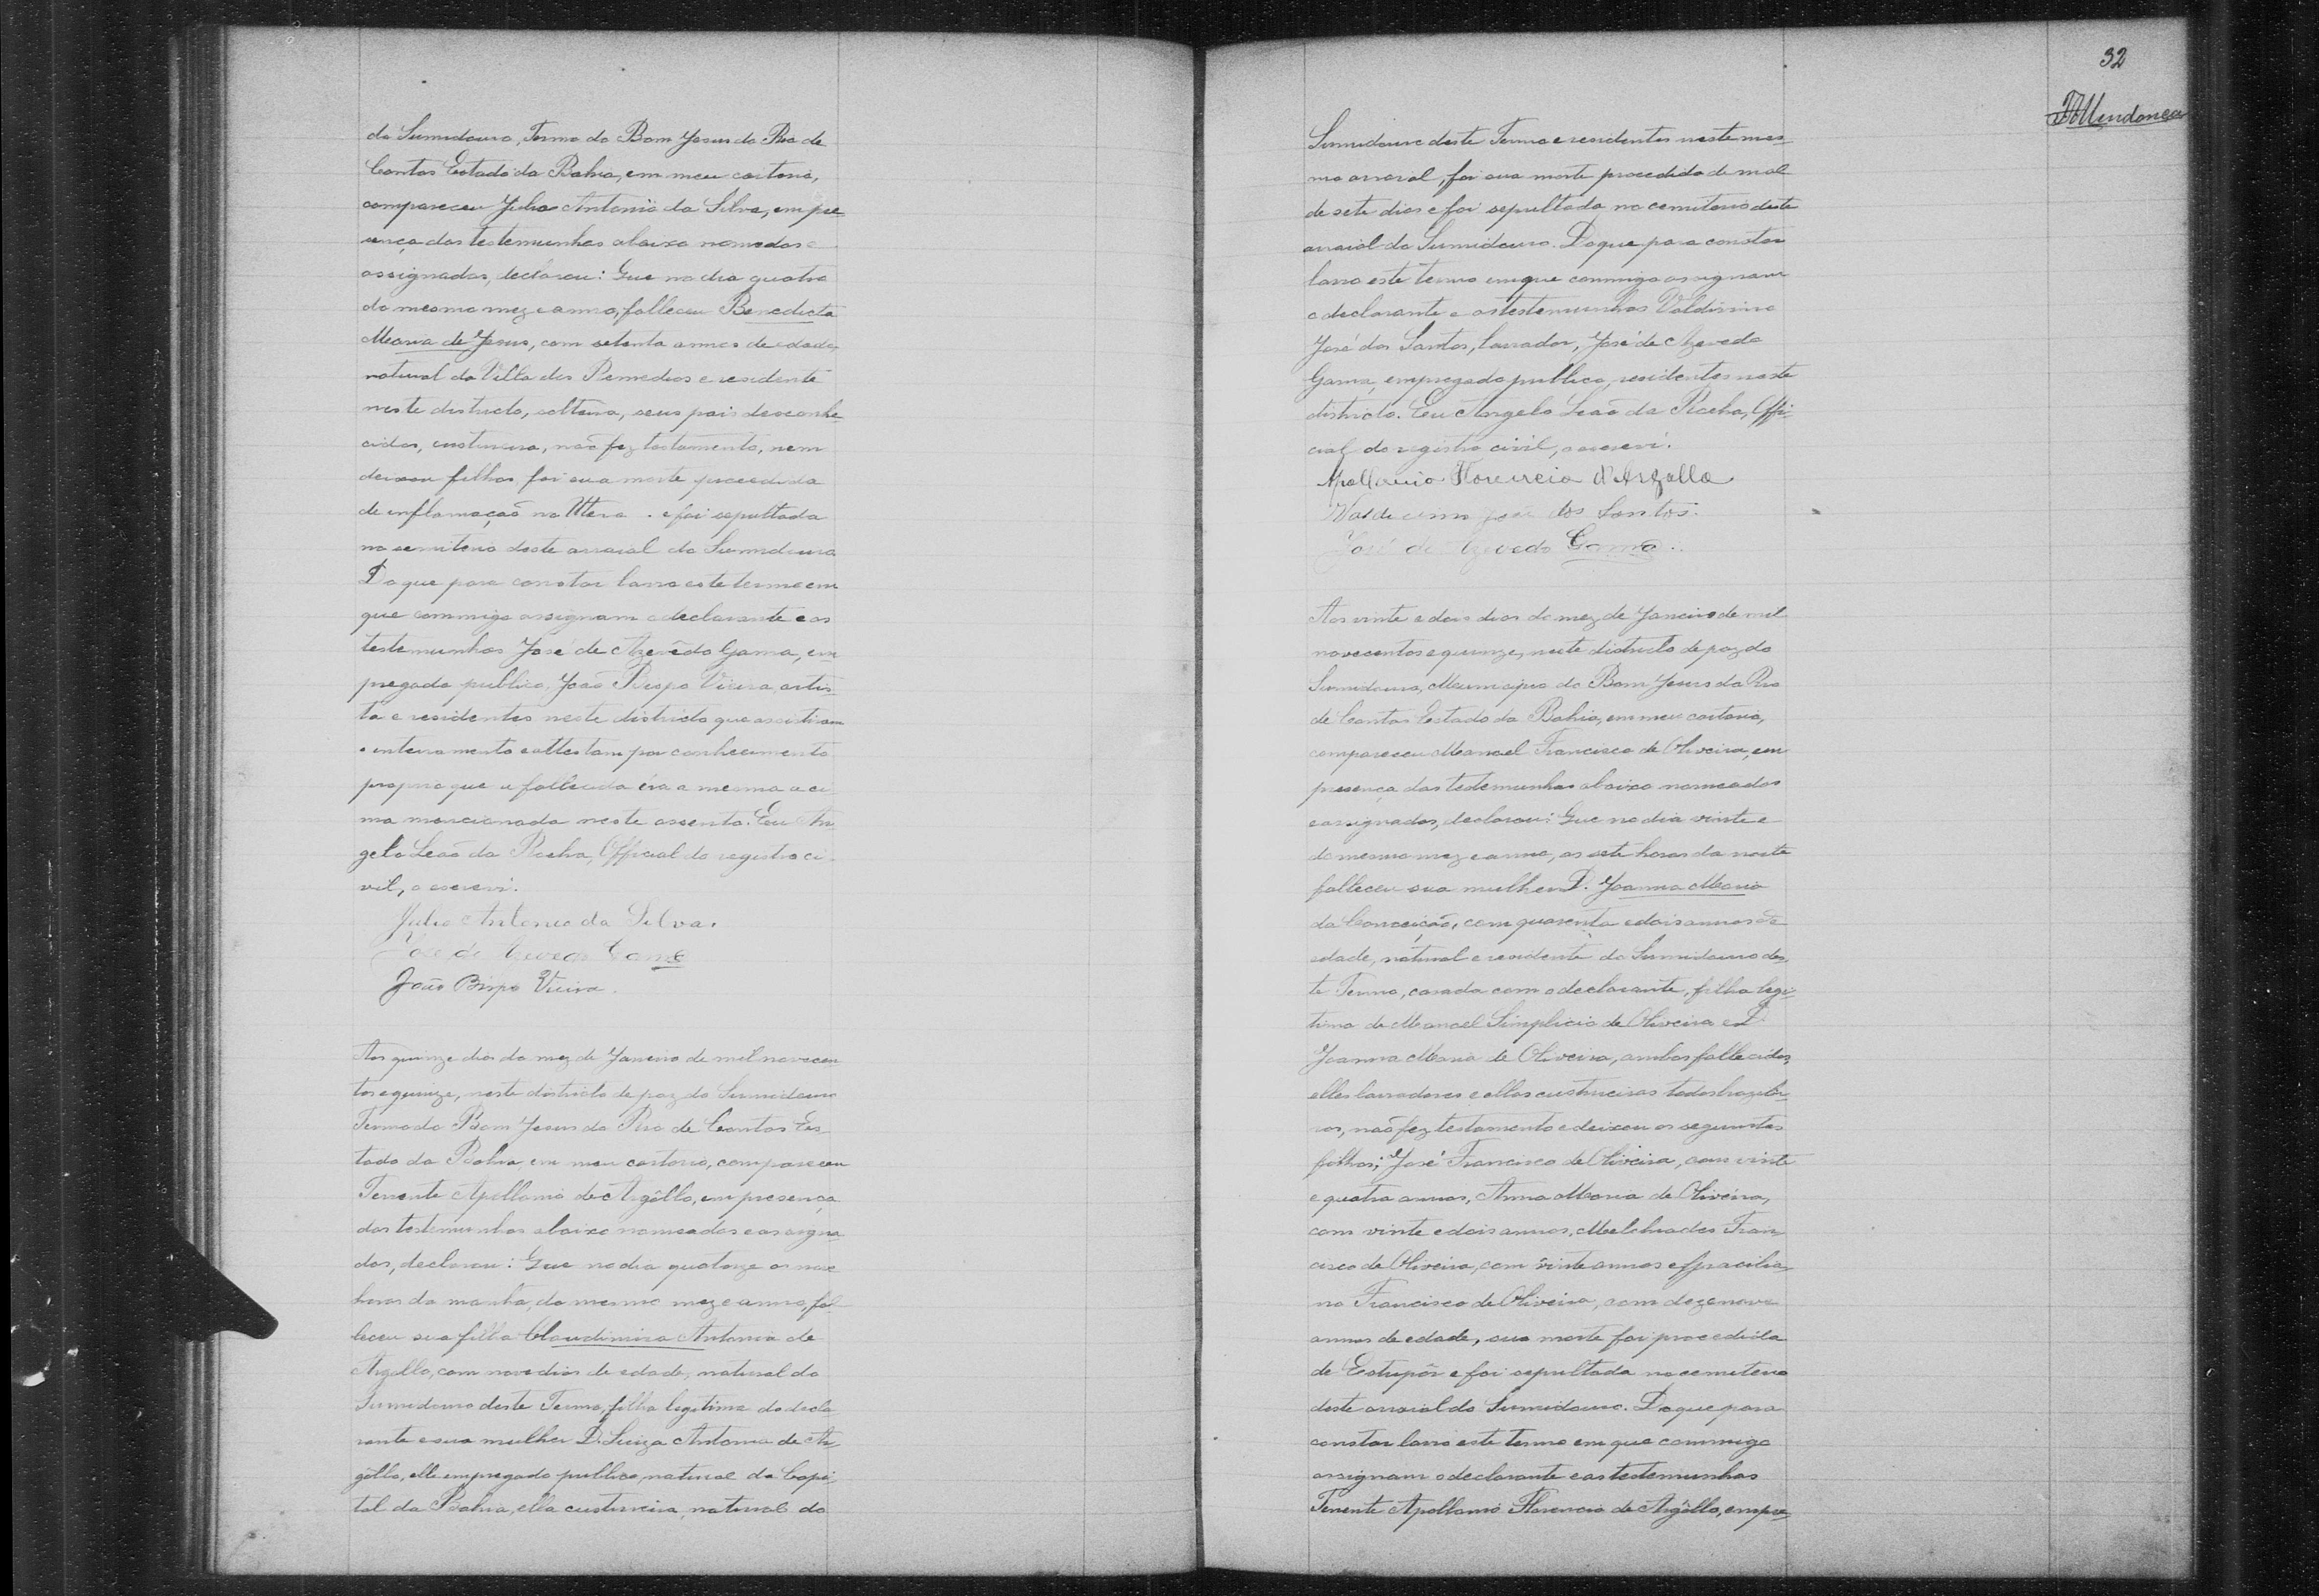 do Sumidouro, Termo do Bom Jesus do Rio de
Contas Estado da Bahia, em meu cartorio,
compareceu Julio Antonio da Silva, em pre-
sença das testemunhas abaixo nomeadas e
assignadas, declarou: Que no dia quatro
do mesmo mez e anno, falleceu Benedicta
Maria de Jesus, com setenta annos de edade,
natural da Villa dos Remedios e residente
neste districto, solteira, seus pais desconhe-
cidos, custureira, não fez testamento, nem
deixou filhos foi sua morte procedida
de inflamação no Utero . e foi sepultada
no semiterio deste arraial do Sumidouro
Do que para constar lavro este termo em
que commigo assignam o declarante e as
testemunhas José de Azevêdo Gama, em-
pregado publico, João Bispo Vieira, artis-
ta e residentes neste districto que assistiram
o enteramento e attestam por conhecimento
proprio que a fallecida éra a mesma aci
ma mencionada neste assento. Eu An
gelo Leão da Rocha, Official do registro ci-
vil, o escrevi.
Julio Antonio da Silva.
José de Azevedo Gama
João Bispo Vieira.
Aos quinze dias do mez de Janeiro de mil novecen
tos e quinze, neste districto de paz do Sumidouro
Termo do Bom Jesus do Rio de Contas Es-
tado da Bahia, em meu cartorio, compareceu
Tenente Apollonio de Argôllo, em presença
das testemunhas abaixo nomeadas e assigna
das, declarou: Que no dia quatorze as nove
horas da manhã, do mesmo mez e anno, fal
leceu sua filha Claudimira Antonia de
Argollo, com nove dias de edade, natural do
Sumidouro deste Termo, filha legitima do decla
rante e sua mulher D. Luiza Antonia de Ar
gôllo, elle empregado publico, natural da Capi
tal da Bahia, ella custureira, natural do
32
Mendonça
Sumidouro deste Termo e residentes neste mes-
mo arraial, foi sua morte procedida de mal
de sete dias e foi sepultada no cemiterio deste
arraial do Sumidouro. Do que para constar
lavro este termo em que commigo assignam
o declarante e as testemunhas Valdivino
José dos Santos, lavrador, José de Azevedo
Gama, empregado publico, residentes neste
districto. Eu Angelo Leão da Rocha, Offi-
cial do registro civil, o escrevi.
Apollonio Florencio d'Argollo
José dos Santos.
José de Azevedo Gama.
Aos vinte e dois dias do mez de Janeiro de mil
novecentos e quinze, neste districto de paz do
Sumidouro, Municipio do Bom Jesus do Rio
de Contas Estado da Bahia, em meu cartorio,
compareceu Manoel Francisco de Oliveira, em
presença das testemunhas abaixo nomeadas
e assignadas, declarou: Que no dia vinte e
do mesmo mez e anno, as sete horas da noite
falleceu sua mulher D. Joanna Maria
da Conceição, com quarenta e dois annos de
edade, natural e residente do Sumidouro des-
te Termo, casada com o declarante, filha legi-
tima de Manoel Simplicio de Oliveira e D.
Joanna Maria de Oliveira, ambos fallecidos,
elles lavradores e ellas custureiras todos brazilei-
ros, não fez testamento e deixou os seguintes
filhos; José Francisco de Oliveira, com vinte
e quatro annos, Anna Maria de Oliveira,
com vinte e dois annos, Melchiades Fran-
cisco de Oliveira, com vinte annos e
no Francisco de Oliveira, com dezenove
annos de edade, sua morte foi procedida
de Estupôr e foi sepultada no cemiterio
deste arraial do Sumidouro. Do que para
constar lavro este termo em que commigo
assignam o declarante e as testemunhas
Tenente Apollonio Florencio de Argôllo, empre-